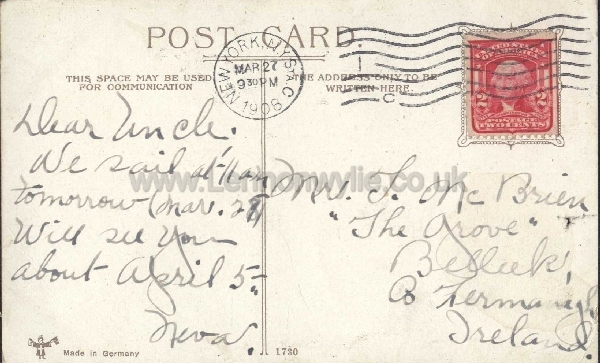 POST CARD.
NEW YORK, N.Y. STA. C
MAR 27
9 30 PM
1906
C
THIS SPACE MAY BE USED
FOR COMMUNICATION
THE ADDRESS ONLY TO BE
WRITTEN HERE.
POSTAGE
TWO CENTS
2 2
Dear Uncle.
We sail at 11 am
tomorrow (Mar. 28)
Will see you
about April 5.
Neva.
Mr. J. McBrien
"The Grove"
Belleek,
Co Fermanagh
Ireland.
www.Lennonwylie.co.uk
Made in Germany
1730